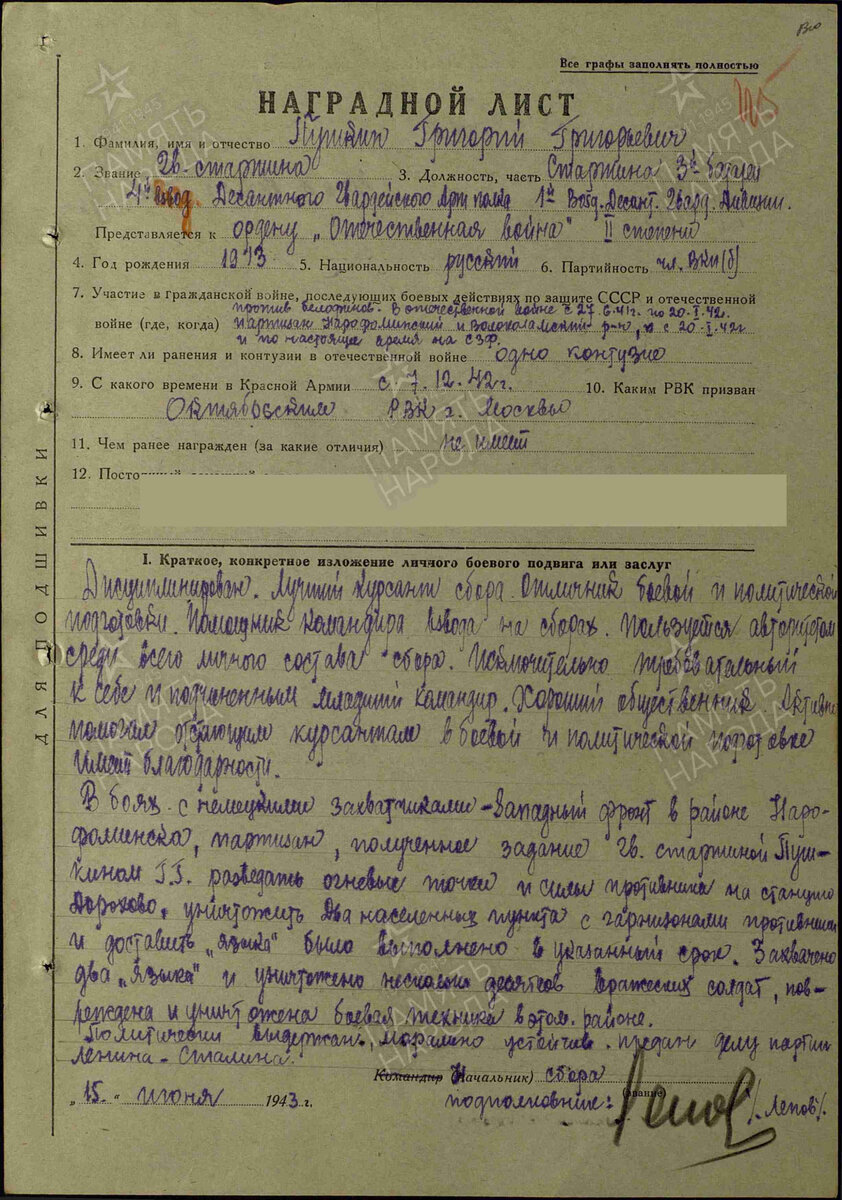 Все графы заполнять полностью
НАГРАДНОЙ ЛИСТ
1. Фамилия, имя и отчество Пушкин Григорий Григорьевич
2. Звание Гв. старшина 3. Должность, часть Старшина 3й батареи
4й Возд. Десантного Гвардейского Арт полка 1й Возд. Десант. Гвард. Дивизии.
Представляется к ордену „Отечественная война" II степени
4. Год рождения 1913 5. Национальность русский 6. Партийность чл. ВКП(б)
7. Участие в гражданской войне, последующих боевых действиях по защите СССР и отечественной
против белофинов. В отечественной войне с 27.6.41г. по 20.I.42.
войне (где, когда) партизан Нарофоминский и Волокаламский р-н, с 20-I.42г
и по настоящее время на СЗФ.
8. Имеет ли ранения и контузии в отечественной войне одно контузие
9. С какого времени в Красной Армии с 7.12.42г. 10. Каким РВК призван
Октябрьским РВК г. Москвы
11. Чем ранее награжден (за какие отличия) не имеет
12.
I. Краткое, конкретное изложение личного боевого подвига или заслуг
Дисциплинирован. Лучший курсант сбора. Отличник боевой и политической
подготовки. Помощник командира взвода на сборах. Пользуется авторитетом
среди всего личного состава сбора. Исключительно требовательный
к себе и подчиненным младший командир. Хороший общественник. Активно
помогал отстающим курсантам в боевой и политической подготовке
Имеет благодарности.
В боях с немецкими захватчиками – Западный фронт в районе Наро-
фоминска, партизан, полученное задание Гв. старшиной Пуш-
киным Г.Г. разведать огневые точки и силы противника на станцию
Дорохово, уничтожить два населенных пункта с гарнизонами противника
и доставить „языка" было выполнено в указанный срок. Захвачено
два „языка" и уничтожено несколько десятков вражеских солдат, пов-
реждена и уничтожена боевая техника в этом районе.
Политически выдержан, морально устойчив. предан делу партии
Ленина – Сталина.
Командир Начальник) сбора
подполковник: (звание) Лепов /Лепов/.
„15" июня 1943 г.
ДЛЯ ПОДШИВКИ
ПАМЯТЬ НАРОДА